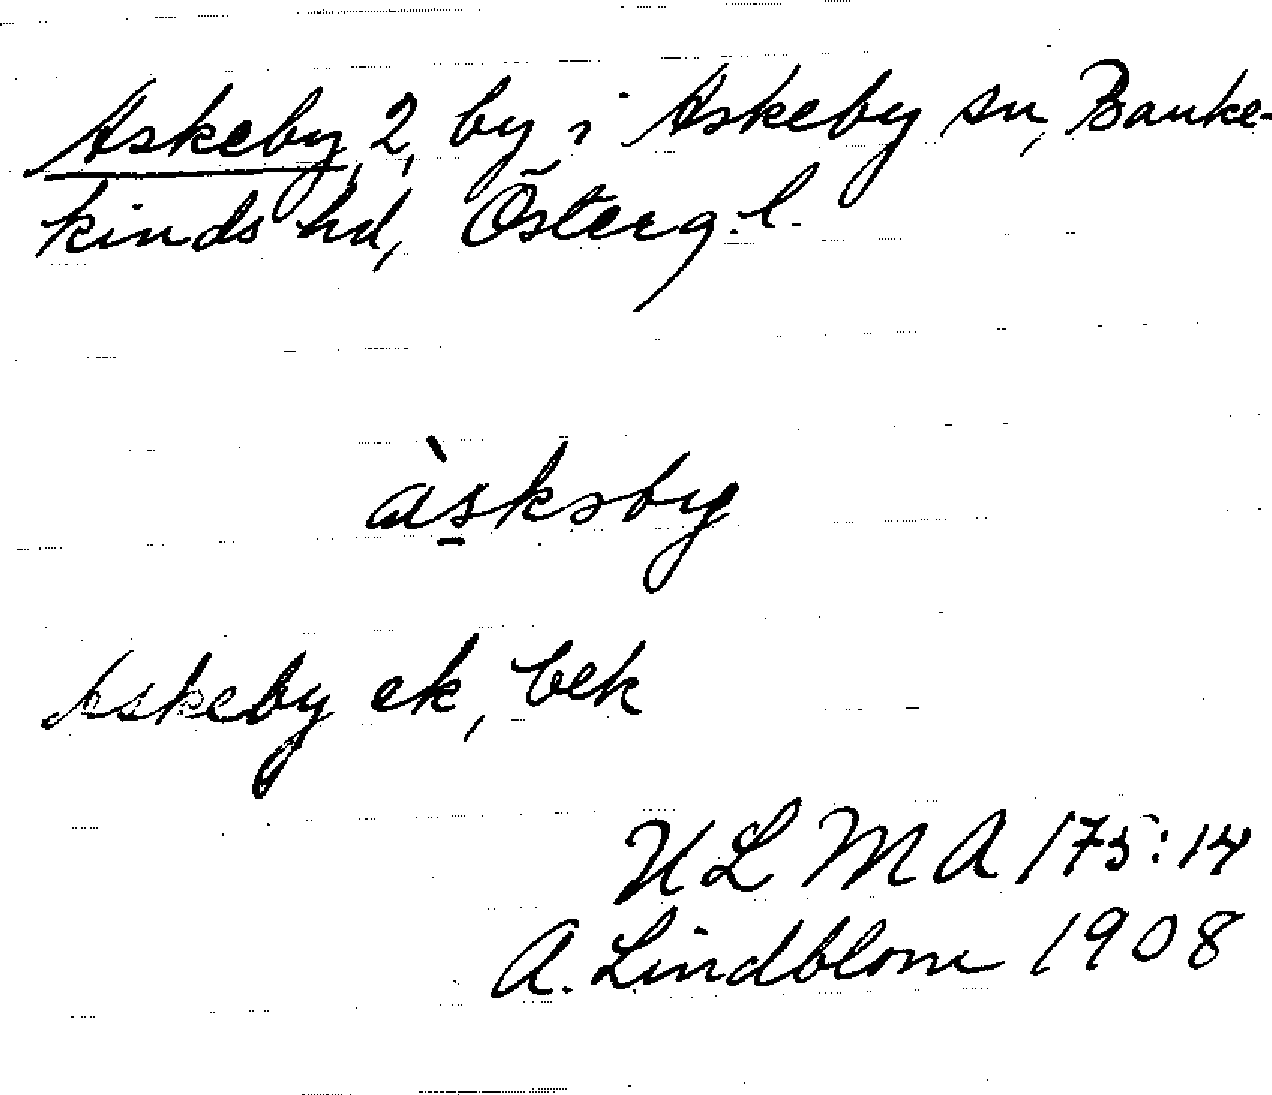 Askeby, 2, by i Askeby sn, Banke-
kinds hd, Österg. l.
àskəby
Askeby ek, bek
ULMA 175:14
A. Lindblom 1908